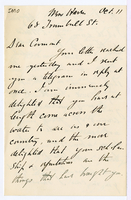 New Haven Oct. 11
63 Trumbull St.
Dear Conway
Your letter reached
me yesterday and I sent
you a telegram in reply at
once. I am immensely
delighted that you have at
length come across the
water to see us in our
country, and the more
delighted that your
ship &
things that have brought you